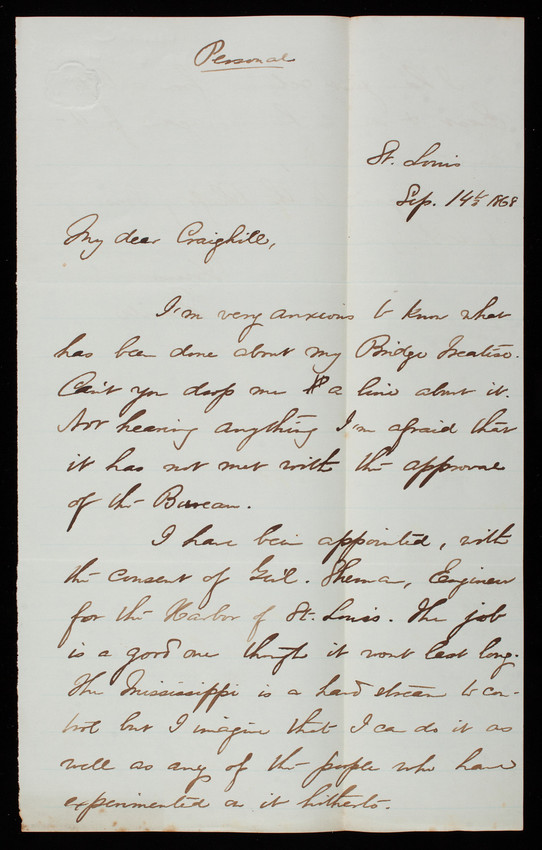 Personal
St. Louis
Sep. 14th 1868
My dear Craighill,
I'm very anxious to know what
has been done about my Bridge Treatise.
Can't you drop me a line about it.
Not hearing anything I'm afraid that
it has not met with the approval
of the Bureau.
I have been appointed, with
the consent of Genl. Sherman, Engineer
for the Harbor of St. Louis. The job
is a good one though it wont last long.
The Mississippi is a hard stream to con-
trol but I imagine that I can do it as
well as any of the people who have
experimented on it hitherto.